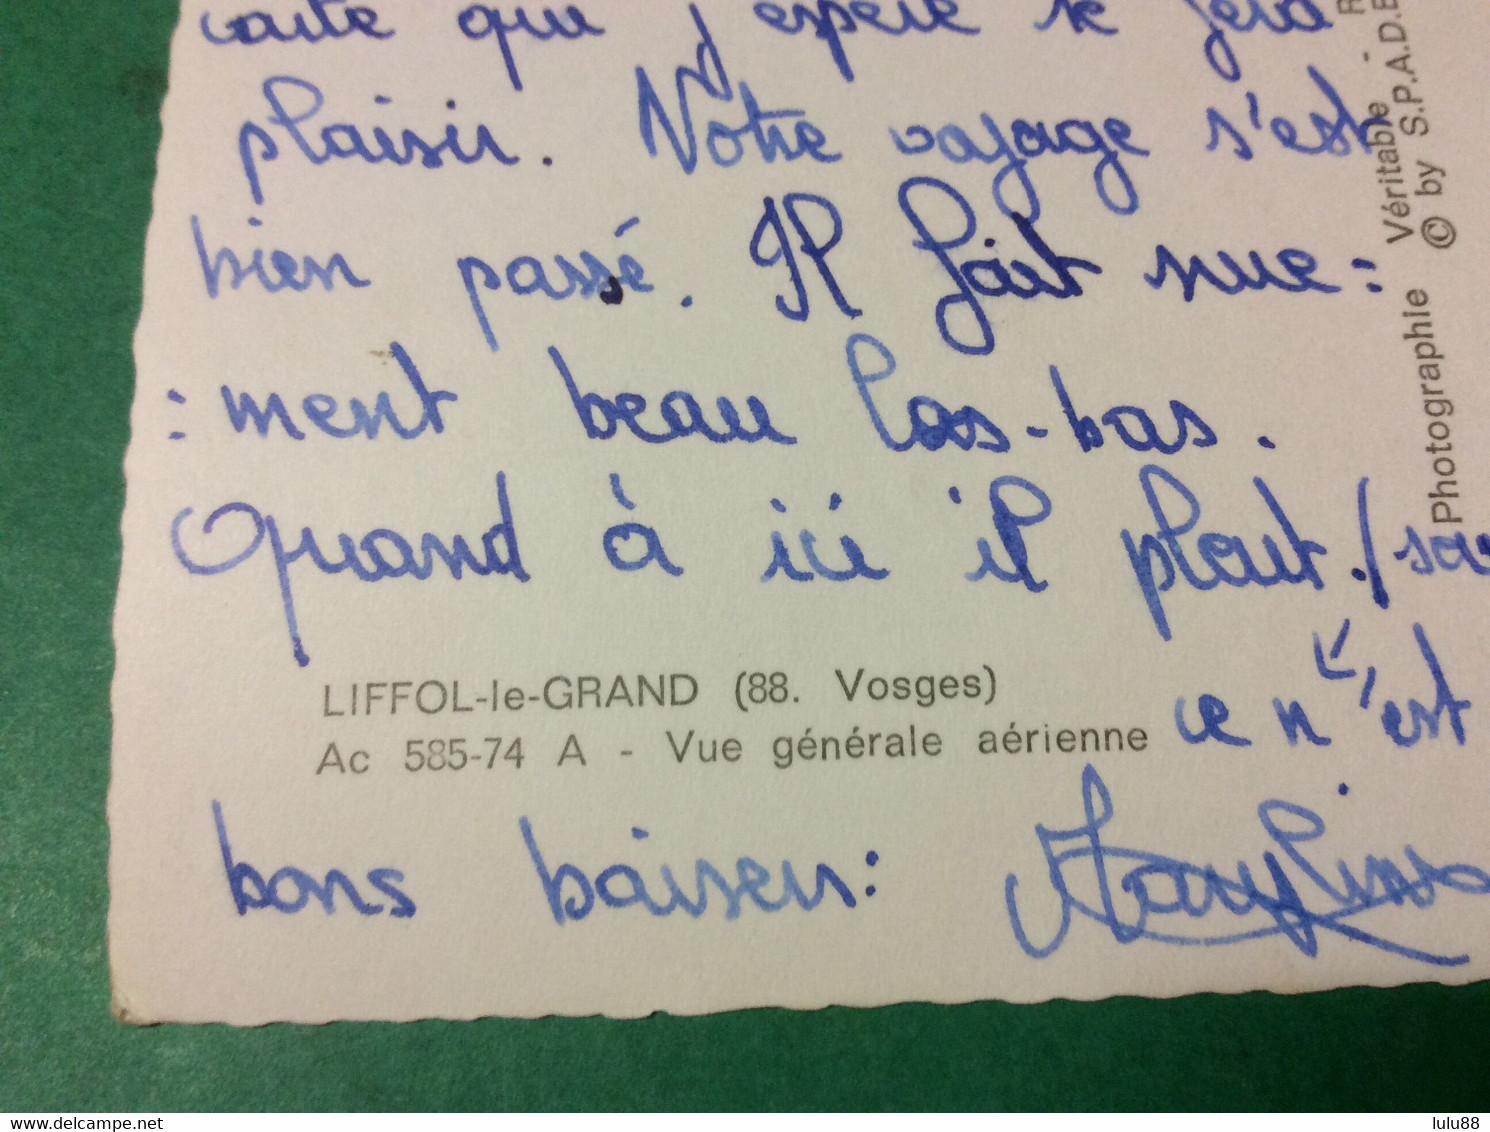 carte qui j'espère te fera
plaisir. Notre voyage s'est
bien passé. Il fait vrue=
=ment beau las-bas.
Quand à ici il plait./
ce n'est
LIFFOL-le-GRAND (88. Vosges)
Ac 585-74 A - Vue générale aérienne
bons baisers: Maryline
Photographie Véritable - R
© by S.P.A.D.E
delcampe.net
lulu88